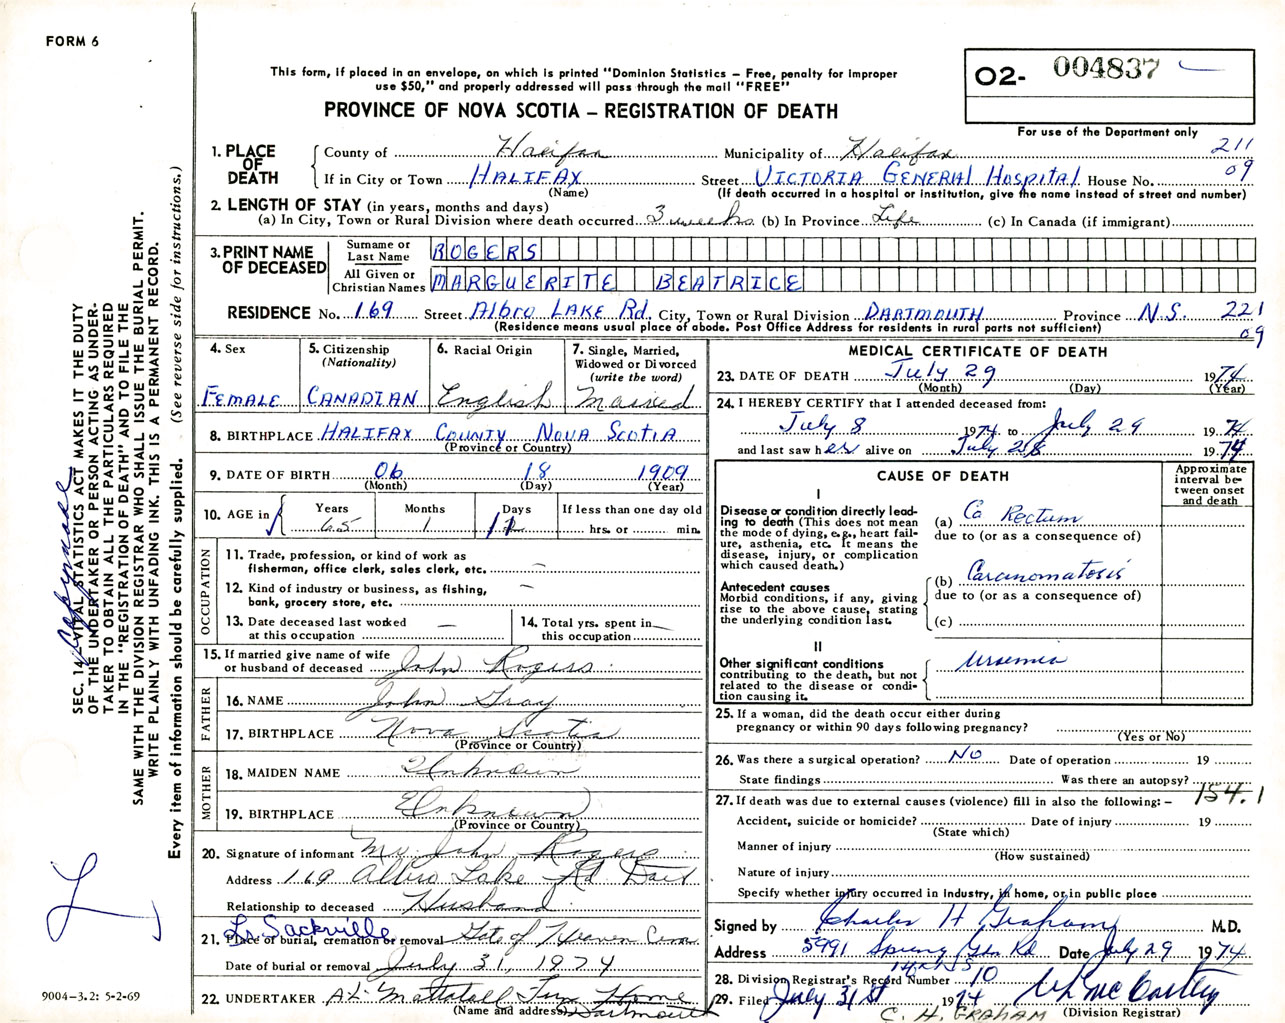 FORM 6
This form, if placed in an envelope, on which is printed "Dominion Statistics – Free, penalty for improper
use $50," and properly addressed will pass through the mail "FREE"
PROVINCE OF NOVA SCOTIA – REGISTRATION OF DEATH
O2- 004837
For use of the Department only
211
09
1. PLACE OF DEATH
County of Halifax Municipality of Halifax
If in City or Town HALIFAX Street VICTORIA GENERAL HOSPITAL House No.
(Name) (If death occurred in a hospital or institution, give the name instead of street and number)
2. LENGTH OF STAY (in years, months and days)
(a) In City, Town or Rural Division where death occurred 3 weeks (b) In Province Life (c) In Canada (if immigrant)
3. PRINT NAME OF DECEASED
Surname or Last Name ROGERS
All Given or Christian Names MARGUERITE BEATRICE
RESIDENCE No. 169 Street Albro LAKE Rd. City, Town or Rural Division DARTMOUTH Province N.S. 221
(Residence means usual place of abode. Post Office Address for residents in rural parts not sufficient) 09
4. Sex
FEMALE
5. Citizenship
(Nationality)
CANADIAN
6. Racial Origin
English
7. Single, Married,
Widowed or Divorced
(write the word)
Married
8. BIRTHPLACE HALIFAX COUNTY NOVA SCOTIA
(Province or Country)
9. DATE OF BIRTH 06 18 1909
(Month) (Day) (Year)
10. AGE in
Years Months Days If less than one day old
65 1 11 hrs. or min.
OCCUPATION
11. Trade, profession, or kind of work as
fisherman, office clerk, sales clerk, etc. —
12. Kind of industry or business, as fishing,
bank, grocery store, etc. —
13. Date deceased last worked
at this occupation —
14. Total yrs. spent in
this occupation —
15. If married give name of wife
or husband of deceased John Rogers
FATHER
16. NAME John Gray
17. BIRTHPLACE Nova Scotia
(Province or Country)
MOTHER
18. MAIDEN NAME Unknown
19. BIRTHPLACE Unknown
(Province or Country)
20. Signature of informant Mr. John Rogers
Address 169 Albro Lake Rd Dart
Relationship to deceased Husband
Lr. Sackville
21. Place of burial, cremation or removal Gate of Heaven Cem
Date of burial or removal July 31, 1974
22. UNDERTAKER A.L. Mattatall Fun Home
(Name and address) Dartmouth
MEDICAL CERTIFICATE OF DEATH
23. DATE OF DEATH July 29 1974
(Month) (Day) (Year)
24. I HEREBY CERTIFY that I attended deceased from:
July 8 1974 to July 29 1974
and last saw her alive on July 28 1974
CAUSE OF DEATH
Approximate
interval be-
tween onset
and death
I
Disease or condition directly lead-
ing to death (This does not mean
the mode of dying, e.g., heart fail-
ure, asthenia, etc. It means the
disease, injury, or complication
which caused death.)
(a) Ca Rectum
due to (or as a consequence of)
Antecedent causes
Morbid conditions, if any, giving
rise to the above cause, stating
the underlying condition last.
(b) Carcinomatosis
due to (or as a consequence of)
(c)
II
Other significant conditions
contributing to the death, but not
related to the disease or condi-
tion causing it.
Uraemia
25. If a woman, did the death occur either during
pregnancy or within 90 days following pregnancy?
(Yes or No)
26. Was there a surgical operation? NO Date of operation 19
State findings Was there an autopsy?
154.1
27. If death was due to external causes (violence) fill in also the following: –
Accident, suicide or homicide? Date of injury 19
(State which)
Manner of injury
(How sustained)
Nature of injury
Specify whether injury occurred in Industry, in home, or in public place
Signed by Charles H Graham M.D.
Address 5991 Spring Gdn Rd Date July 29 1974
28. Division Registrar's Record Number 10
29. Filed July 31st 1974
(Division Registrar)
C. H. GRAHAM
SEC. 14 – VITAL STATISTICS ACT MAKES IT THE DUTY
OF THE UNDERTAKER OR PERSON ACTING AS UNDER-
TAKER TO OBTAIN ALL THE PARTICULARS REQUIRED
IN THE "REGISTRATION OF DEATH" AND TO FILE THE
SAME WITH THE DIVISION REGISTRAR WHO SHALL ISSUE THE BURIAL PERMIT.
WRITE PLAINLY WITH UNFADING INK. THIS IS A PERMANENT RECORD.
Every item of information should be carefully supplied. (See reverse side for instructions.)
9004-3.2: 5-2-69